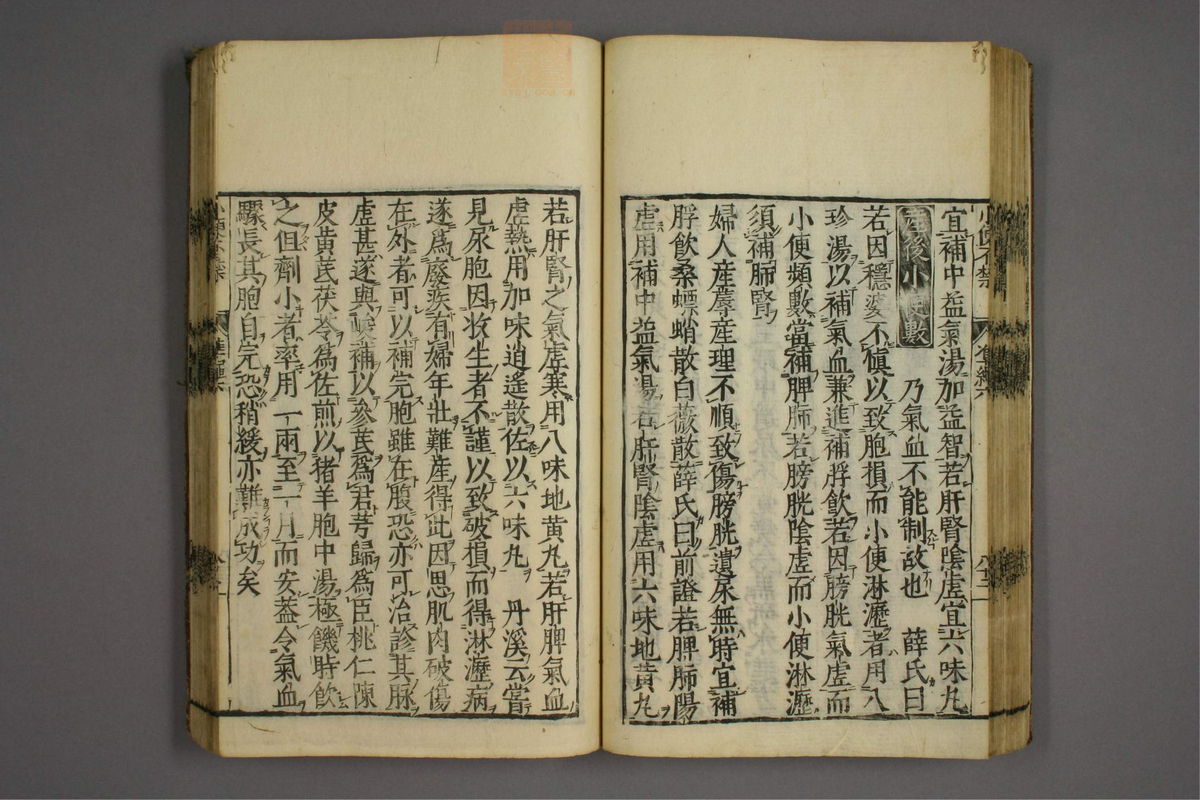 宜補中益氣湯加益智若肝腎陰虛宜六味丸
產後小便數 乃氣血不能制故也 薛氏曰
若因穩婆不慎以致胞損而小便淋瀝者用八
珍湯以補氣血兼進補脬飲若因膀胱氣虛而
小便頻數當補脾肺若膀胱陰虛而小便淋瀝
須補肺腎
婦人產蓐產理不順致傷膀胱遺尿無時宜補
脬飲桑螵蛸散白薇散薛氏曰前證若脾肺陽
虛用補中益氣湯若肝腎陰虛用六味地黃丸
若肝腎之氣虛寒用八味地黃丸若肝脾氣血
虛熱用加味逍遙散佐以六味丸 丹溪云嘗
見尿胞因收生者不謹以致破損而得淋瀝病
遂為廢疾有婦年壯難產得此因思肌肉破傷
在外者可以補完胞雖在腹恐亦可治診其脉
虛甚遂與峻補以參芪為君芎歸為臣桃仁陳
皮黃芪茯苓為佐煎以猪羊胞中湯極饑時飲
之但劑小者率用一兩至一月而安蓋令氣血
驟長其胞自完恐稍緩亦難成功矣